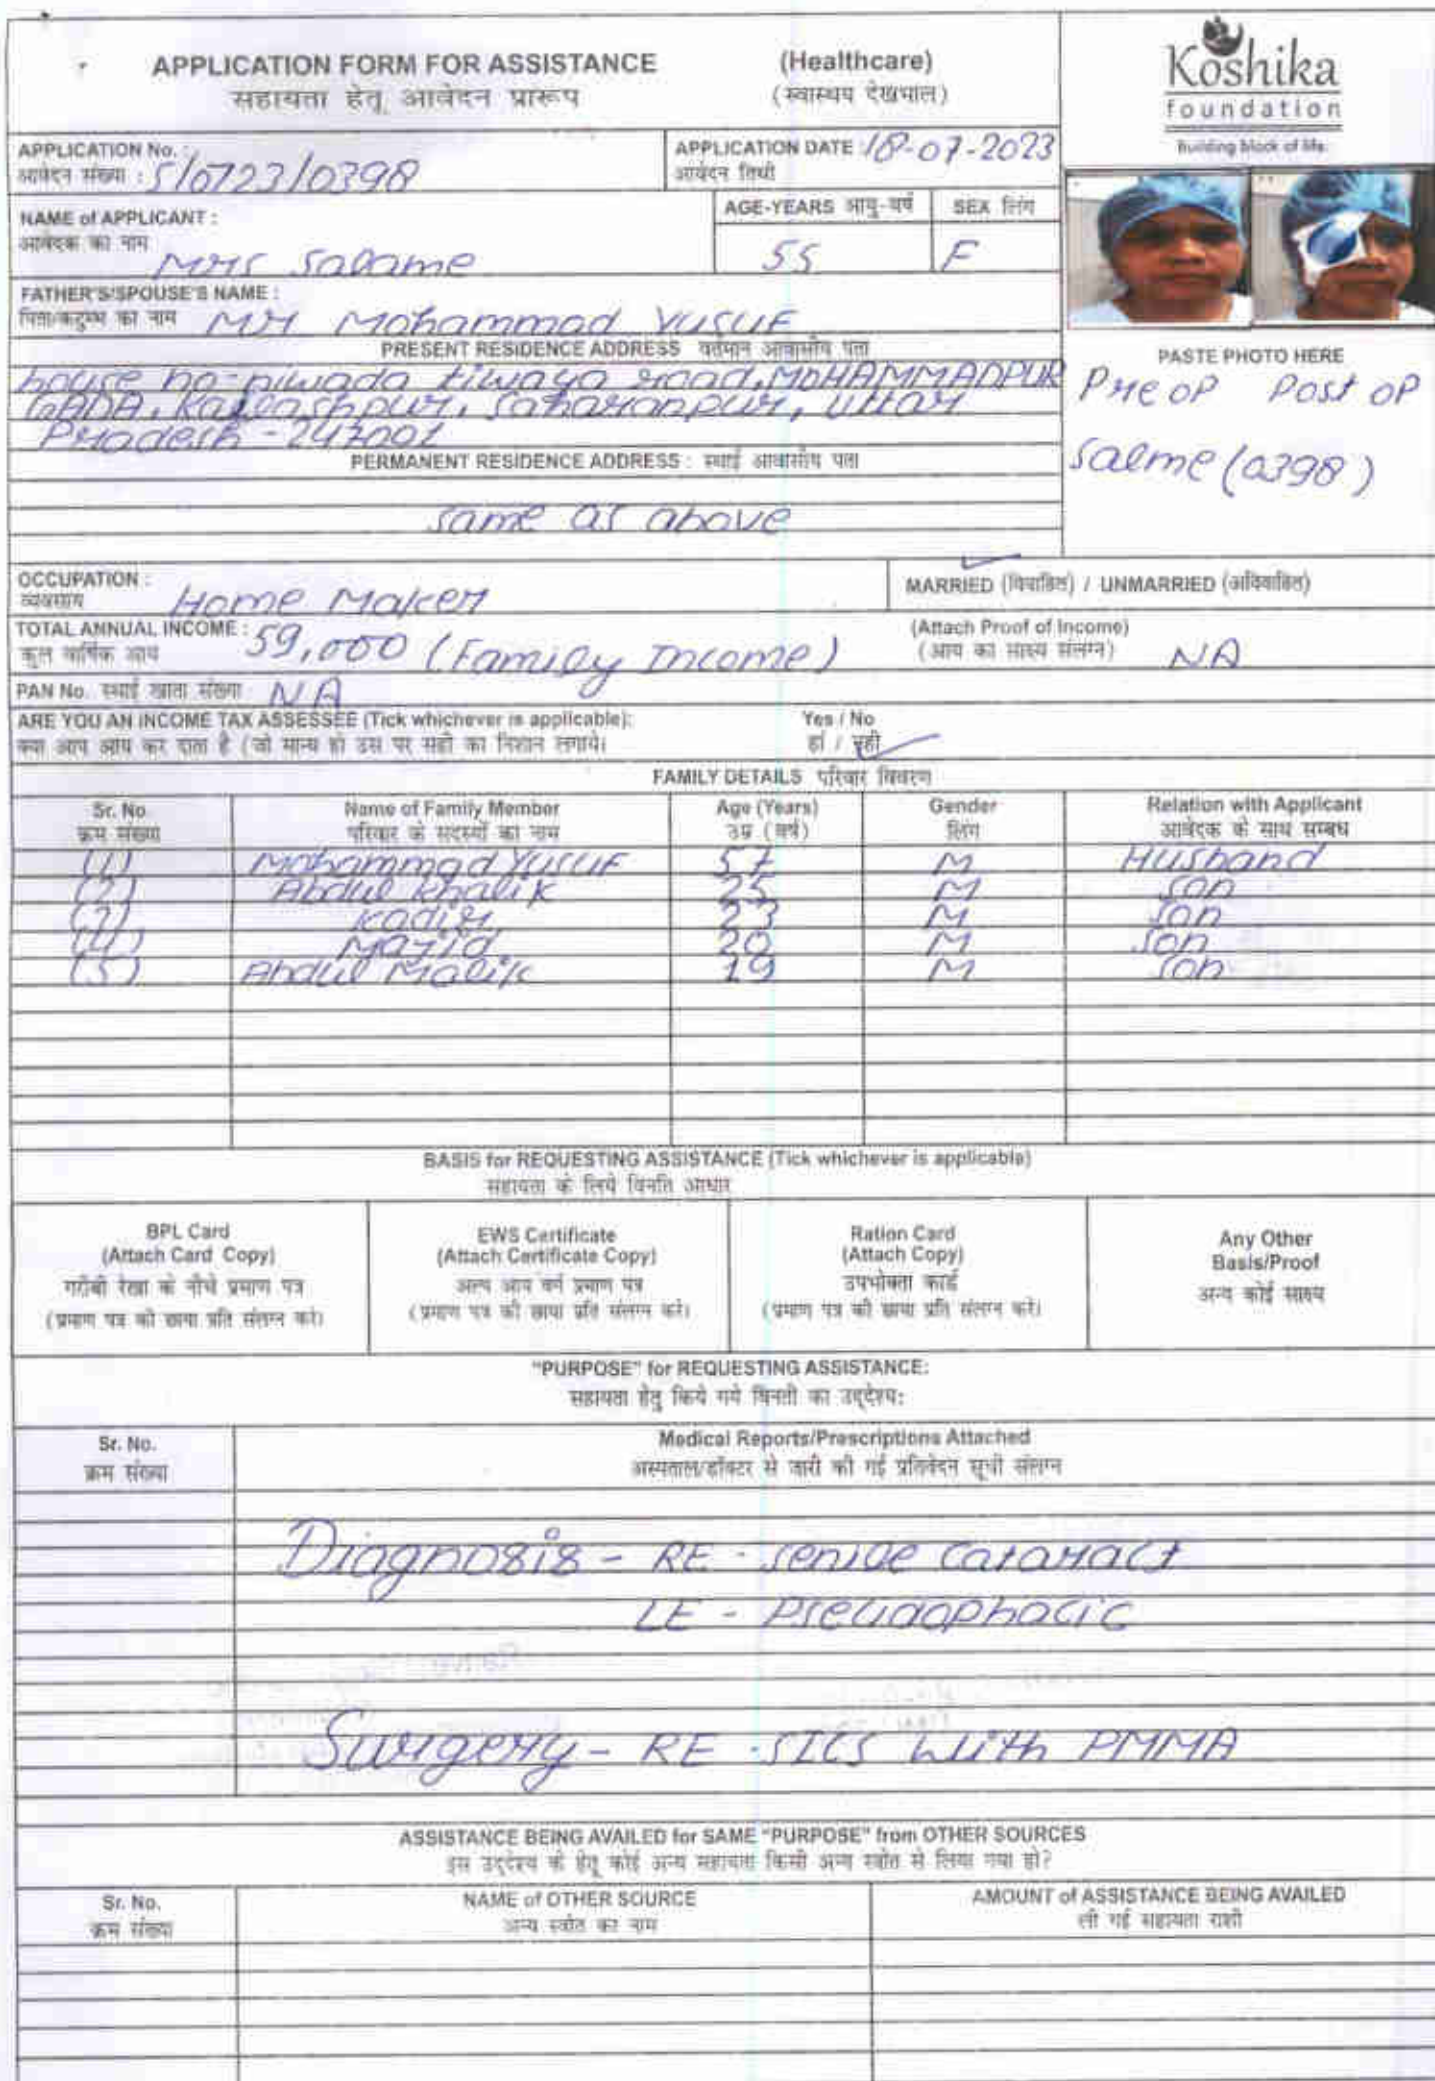 APPLICATION FORM FOR ASSISTANCE (Healthcare)
सहायता हेतू आवेदन प्रारूप (स्वास्थय देखभाल)
Koshika
foundation
Building block of life
APPLICATION No. : S/0723/0398
आवेदन संख्या :
APPLICATION DATE : 18-07-2023
आवेदन तिथी
NAME of APPLICANT :
आवेदक का नाम
Mrs Salame
AGE-YEARS आयु-वर्ष
55
SEX लिंग
F
FATHER'S/SPOUSE'S NAME :
पिता/कटुम्भ का नाम Mr Mohammad Yusuf
PRESENT RESIDENCE ADDRESS वर्तमान आवासीय पता
house no-piwada tiwaya road, MOHAMMADPUR
GADA, Kailashpur, Saharanpur, Uttar
Pradesh - 247001
PERMANENT RESIDENCE ADDRESS : स्थाई आवासीय पता
same as above
PASTE PHOTO HERE
Pre OP Post OP
Salme (0398)
OCCUPATION :
व्यवसाय Home Maker
MARRIED (विवाहित) / UNMARRIED (अविवाहित)
TOTAL ANNUAL INCOME : 59,000 (Family Income)
कुल वार्षिक आय
(Attach Proof of Income)
(आय का साक्ष्य संलग्न) NA
PAN No. स्थाई खाता संख्या NA
ARE YOU AN INCOME TAX ASSESSEE (Tick whichever is applicable): Yes / No
क्या आप आय कर दाता है (जो मान्य हो उस पर सही का निशान लगाये। हां / नही
FAMILY DETAILS परिवार विवरण
Sr. No. Name of Family Member Age (Years) Gender Relation with Applicant
क्रम संख्या परिवार के सदस्यों का नाम उम्र (वर्ष) लिंग आवेदक के साथ सम्बध
(1) Mohammad Yusuf 57 M Husband
(2) Abdul Khalik 25 M Son
Kadir 23 M Son
(4) Majid 20 M Son
(5) Abdul Malik 19 M Son
BASIS for REQUESTING ASSISTANCE (Tick whichever is applicable)
सहायता के लिये विनति आधार
BPL Card
(Attach Card Copy)
गरीबी रेखा के नीचे प्रमाण पत्र
(प्रमाण पत्र की छाया प्रति संलग्न करें)
EWS Certificate
(Attach Certificate Copy)
अल्प आय वर्ग प्रमाण पत्र
(प्रमाण पत्र की छाया प्रति संलग्न करें)
Ration Card
(Attach Copy)
उपभोक्ता कार्ड
(प्रमाण पत्र की छाया प्रति संलग्न करें)
Any Other
Basis/Proof
अन्य कोई साक्ष्य
"PURPOSE" for REQUESTING ASSISTANCE:
सहायता हेतु किये गये विनती का उद्देश्य:
Sr. No. Medical Reports/Prescriptions Attached
क्रम संख्या अस्पताल/डॉक्टर से जारी की गई प्रतिवेदन सूची संलग्न
Diagnosis - RE - senile Cataract
LE - Pseudophacic
Surgery - RE - SICS with PMMA
ASSISTANCE BEING AVAILED for SAME "PURPOSE" from OTHER SOURCES
इस उद्देश्य के हेतू कोई अन्य सहायता किसी अन्य स्त्रोत से लिया गया हो?
Sr. No. NAME of OTHER SOURCE AMOUNT of ASSISTANCE BEING AVAILED
क्रम संख्या अन्य स्त्रोत का नाम ली गई सहायता राशी